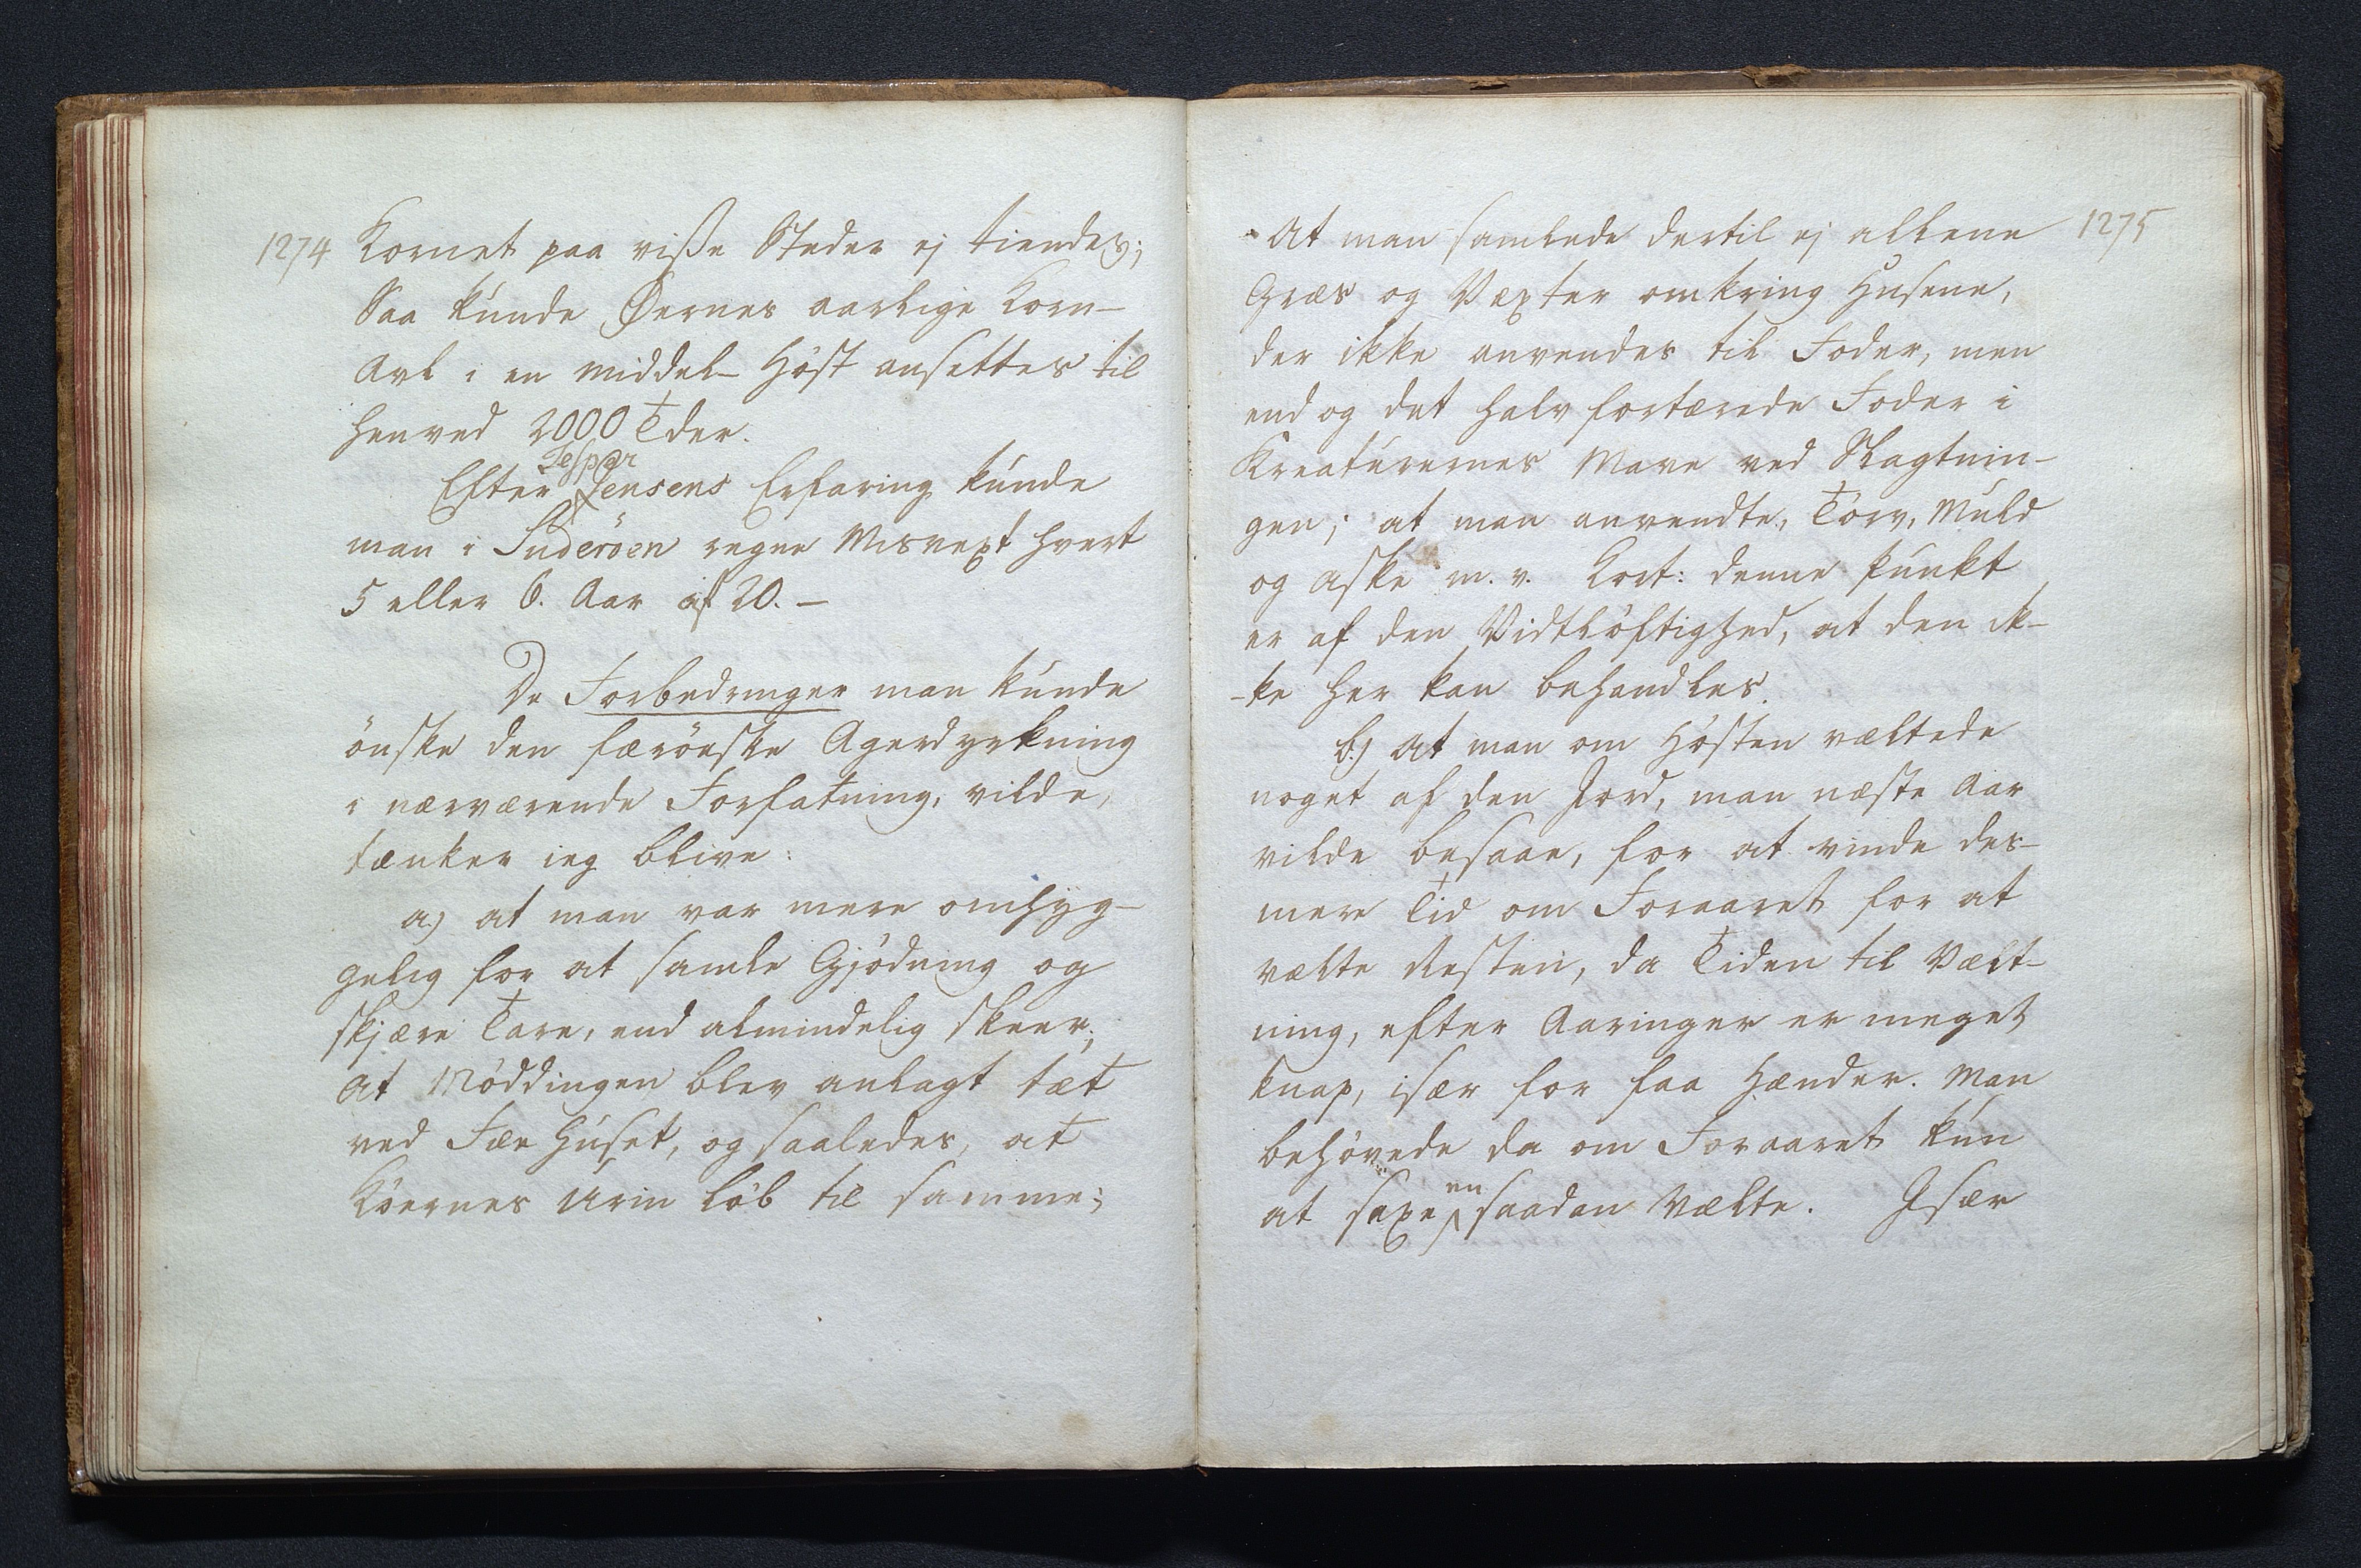 1274
Kornet paa visse Steder ej tiendes;
Saa kunde Øernes aarlige Korn-
Avl i en middel-Höst ansettes til
henved 2000 Tder.
Jesper
Efter Jensens Erfaring kunde
man i Suderöen regne Misvext hvert
5 eller 6. Aar af 20. -
De Forbedringer man kunde
önske den færöeske Agerdyrkning
i nærværende Forfatning, vilde,
tænker ieg blive:
a.) at man var mere omhyg-
gelig for at samle Gjödning og
skjære Tare, end almindelig skeer;
at Möddingen blev anlagt tæt
ved Fæe Huset, og saaledes, at
Köernes Urin löb til samme;
1275
At man samlede dertil ej allene
Græs og Vexter omkring Husene,
der ikke anvendes til Foder, men
end og det halv fortærede Foder i
Kreaturernes Mave ved Slagtnin-
gen; at man anvendte, Törv, Muld
og Aske m. v. Kort: denne Punkt
er af den Vidtlöftighed, at den ik-
-ke her kan behandles.
b.) At man om Hösten væltede
noget af den Jord, man næste Aar
vilde besaae, for at vinde des-
mere Tid om Foraaret for at
vælte Resten, da Tiden til Vælt-
ning, efter Aaringer er meget
knap, især for faa Hænder. Man
behövede da om Foraaret kun
en
at saxe saadan Vælte. Især